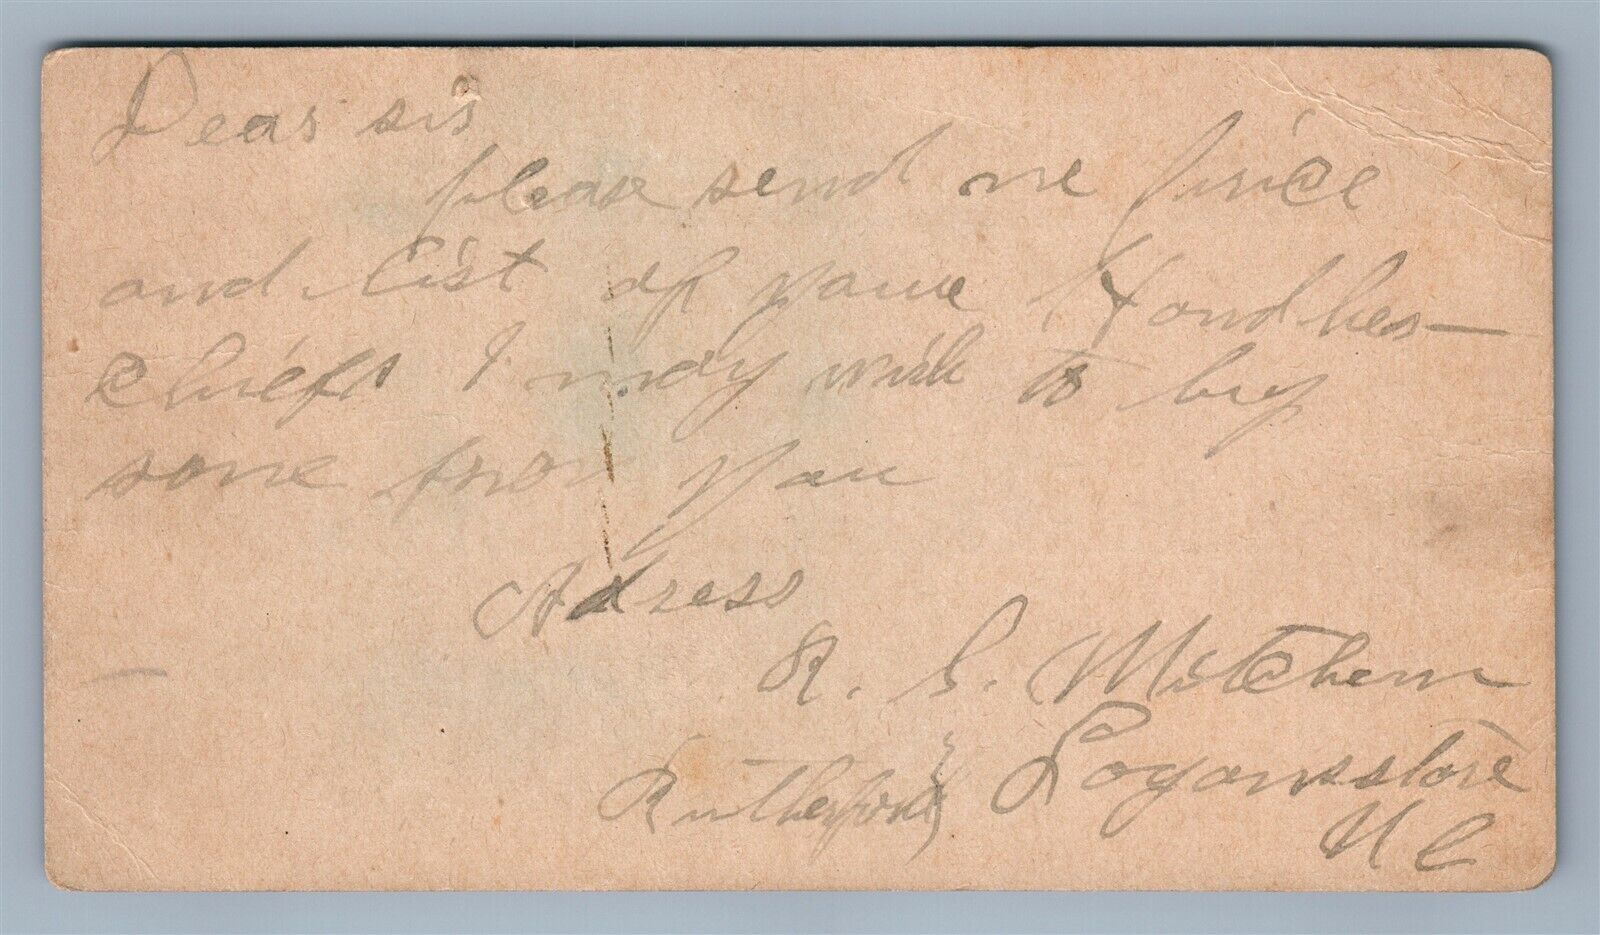 Dear sir
please send me price
and list of your Handker–
chiefs I may wish to buy
some from you
Adress
R. S. Mitchem
Logansstore
Rutherford} N C